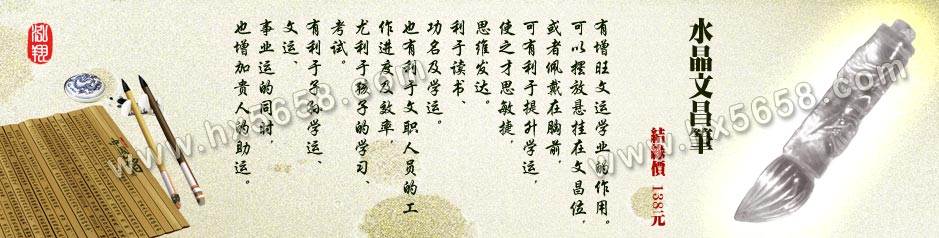 水晶文昌筆
結緣價 138元
有增旺文运学业的作用。
可以摆放悬挂在文昌位,
或者佩戴在胸前,
可有利于提升学运,
使之才思敏捷,
思维发达。
利于读书、
功名及学运。
也有利于文职人员的工
作进度及效率,
尤利于孩子的学习、
考试。
有利于子孙学运、
文运、
事业运的同时,
也增加贵人的助运。
www.hx5658.com
www.hx5658.com